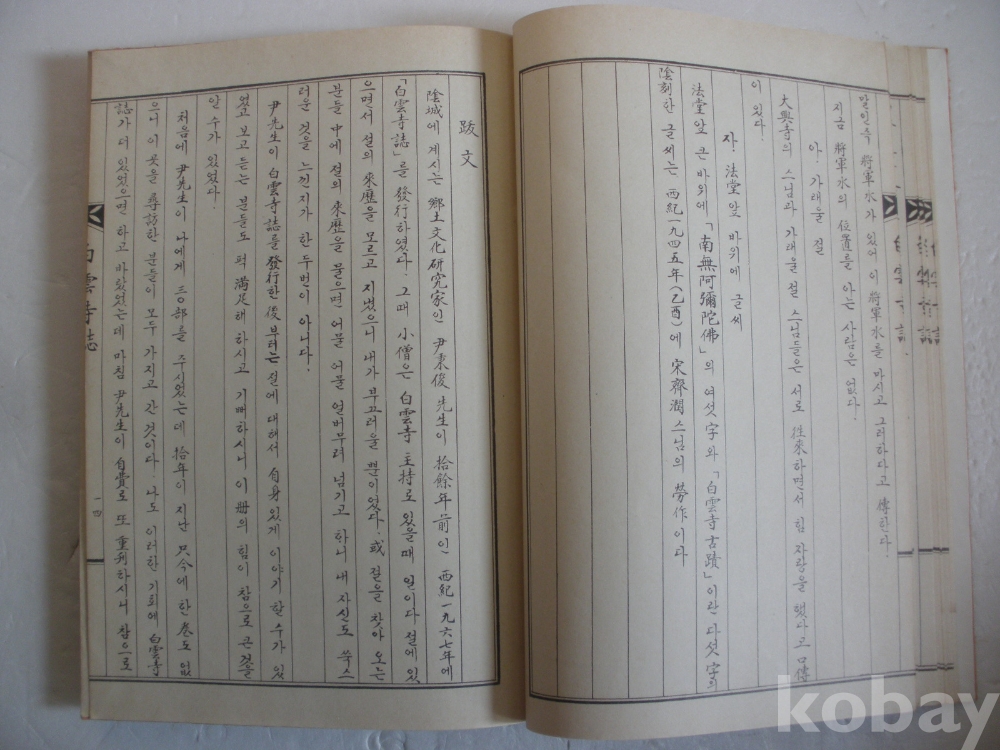 알인즉 將軍水가 있어 이 將軍水를 마시고 그러하다고 傳한다.
지금 將軍水의 位置를 아는 사람은 없다.
아. 가래울 절
大興寺의 스님과 가래울 절 스님들은 서로 往來하면서 힘 자랑을 했다고 口傳
이 있다.
자. 法堂 앞 바위에 글씨
法堂앞 큰 바위에 「南無阿彌陀佛」의 여섯字와 「白雲寺古蹟」이란 다섯字의
陰刻한 글씨는 西紀一九四五年(乙酉)에 宋齊潤스님의 勞作이다
跋文
陰城에 계시는 鄕土文化硏究家인 尹秉俊 先生이 拾餘年前인 西紀一九六七年에
「白雲寺誌」를 發行하였다. 그때 小僧은 白雲寺 主持로 있을때 일이다 절에 있
으면서 절의 來歷을 모르고 지냈으니 내가 부끄러울 뿐이었다. 或 절을 찾아 오는
분들 中에 절의 來歷을 물으면 어물 어물 얼버무려 넘기고 하니 내 자신도 쑥스
러운 것을 느낀지가 한 두번이 아니다.
尹先生이 白雲寺誌를 發行한 後부터는 절에 대해서 自身있게 이야기 할수가 있
었고 보고 듣는 분들도 퍽 滿足해 하시고 기뻐하시니 이 冊의 힘이 참으로 큰것을
알 수가 있었다.
처음에 尹先生이 나에게 三○部를 주시었는데 拾年이 지난 只今에 한 卷도 없
으니 이 곳을 尋訪한 분들이 모두 가지고 간 것이다. 나도 이러한 기회에 白雲寺
誌가 더 있었으면 하고 바랐었는데 마침 尹先生이 自費로 또 重刊하시니 참으로
白雲寺誌
一四
kobay